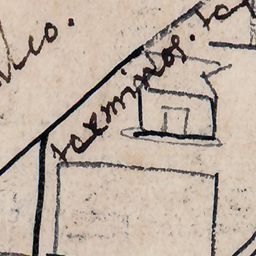 lco.
terminos.